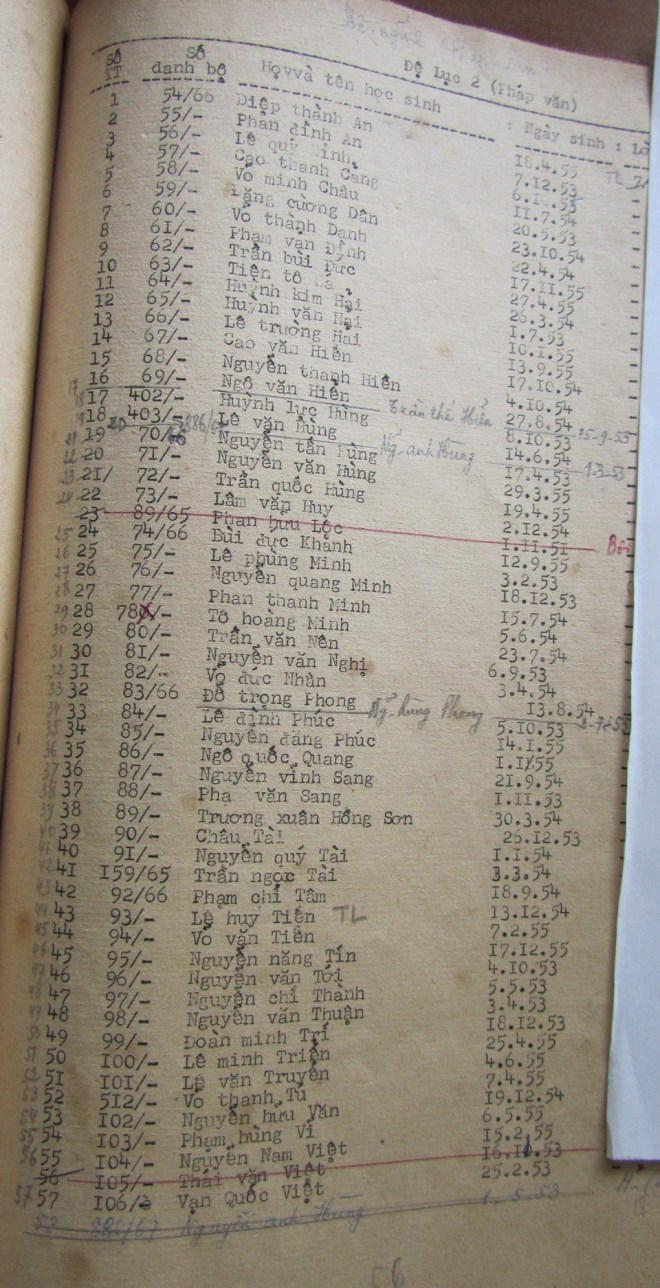 Đệ Lục 2 (Pháp văn)
Số TT Số danh bộ Họ và tên học sinh : Ngày sinh :
1 54/66 Diệp thành An 18.4.55 TL
2 55/- Phan đình An 7.12.53
3 56/- Lê quý Bình
4 57/- Cao thanh Cang 11.7.54
5 58/- Võ minh Châu 20.5.53
6 59/- Đặng cường Dân 23.10.54
7 60/- Võ thành Danh 22.4.54
8 61/- Phạm văn Đỉnh 17.11.55
9 62/- Trần bùi Đức 27.4.55
10 63/- Tiện tô 26.3.54
11 64/- Huỳnh kim Hai 1.7.53
12 65/- Huỳnh văn Hai 10.1.55
13 66/- Lê trường Hai 13.9.55
14 67/- Cao văn Hiền 17.10.54
15 68/- Nguyễn thanh Hiền 4.10.54
17 16 69/- Ngô văn Hiền Trần thế Hiển 27.8.54 15-9-53
18 17 402/- Huỳnh lực Hùng 8.10.53
19 18 403/- Lê văn Hùng Ng. anh Hùng 14.6.54 1-3-53
21 19 70/66 Nguyễn tấn Hùng 17.4.53
22 20 71/- Nguyễn văn Hùng 29.3.55
23 21/ 72/- Trần quốc Hùng 19.4.55
24 22 73/- Lâm văn Huy 2.12.54
23 89/65 Phan hữu Lộc 1.11.51
25 24 74/66 Bùi đức Khánh 12.9.55
26 25 75/- Lê phùng Minh 3.2.53
27 26 76/- Nguyễn quang Minh 18.12.53
28 27 77/- Phan thanh Minh 15.7.54
29 28 78/- Tô hoàng Minh 5.6.54
30 29 80/- Trần văn Nên 23.7.54
31 30 81/- Nguyễn văn Nghị 6.9.53
32 31 82/- Võ đức Nhàn 3.4.54
33 32 83/66 Đỗ trọng Phong Ng. hùng Phong 13.8.54
34 33 84/- Lê đình Phúc 5.10.53
35 34 85/- Nguyễn đăng Phúc 14.1.55
36 35 86/- Ngô quốc Quang 1.1.55
37 36 87/- Nguyễn vĩnh Sang 21.9.54
38 37 88/- Pha văn Sang 1.11.53
39 38 89/- Trương xuân Hồng Sơn 30.3.54
40 39 90/- Châu Tài 26.12.53
41 40 91/- Nguyễn quý Tài 1.1.54
42 41 159/65 Trần ngọc Tài 3.3.54
43 42 92/66 Phạm chí Tâm 18.9.54
44 43 93/- Lê huy Tiến TL 13.12.54
45 44 94/- Võ văn Tiên 7.2.55
46 45 95/- Nguyễn năng Tín 17.12.55
47 46 96/- Nguyễn văn Tới 4.10.53
48 47 97/- Nguyễn chí Thành 5.5.53
49 48 98/- Nguyễn văn Thuận 3.4.53
50 49 99/- Đoàn minh Trí 18.12.53
51 50 100/- Lê minh Triện 25.4.55
52 51 101/- Lê văn Truyền 4.6.55
53 52 512/- Võ thanh Tú 7.4.55
54 53 102/- Nguyễn hữu Văn 19.12.54
55 54 103/- Phạm hùng Vĩ 6.5.55
56 55 104/- Nguyễn Nam Việt 15.2.55
56 105/- Thái văn Việt 16.10.53
57 57 106/- Vạn Quốc Việt 25.2.53
58 886/67 Nguyễn anh Hùng 1.5.53